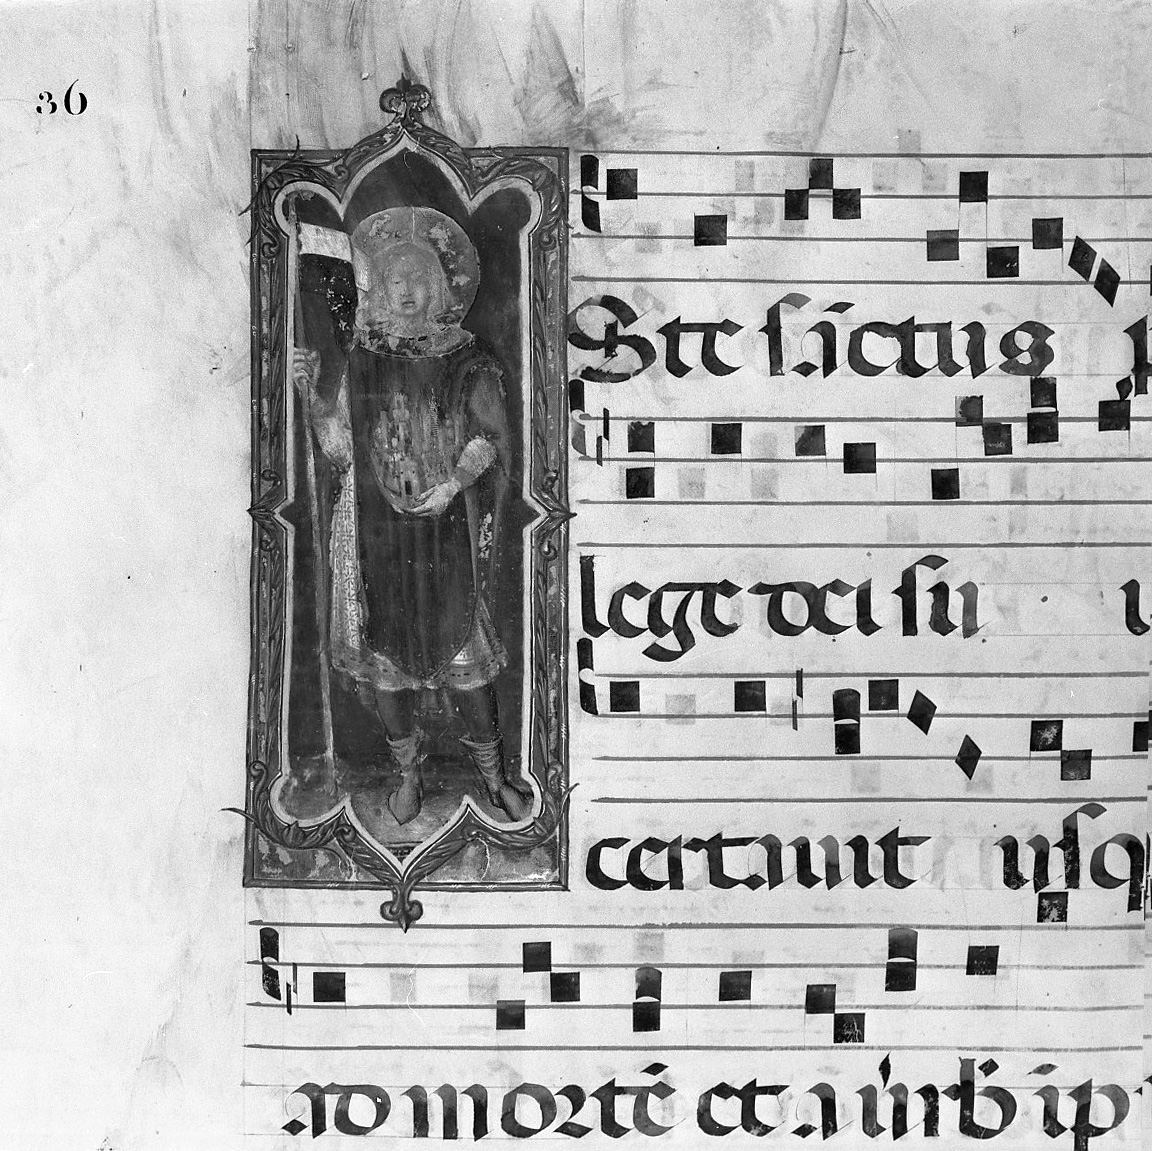 36
Ste sāctus p
lege dei sui u
certauit usq
ad mortē et a uerb ip